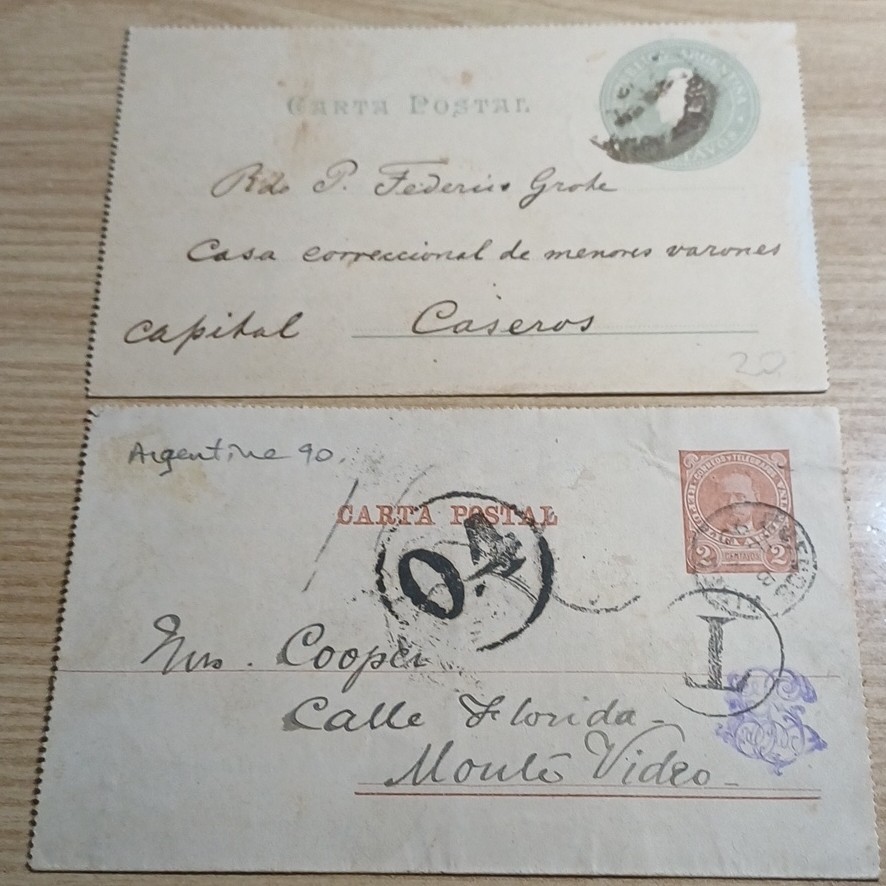 CARTA POSTAL
Rdo P. Federico Grote
Casa correccional de menores varones
capital Caseros
20
Argentine 90.
CORREOS Y TELEGRAFOS
CARTA POSTAL
2 CENTAVOS 2
04
T
Mrs. Cooper
Calle Florida
Monte Video